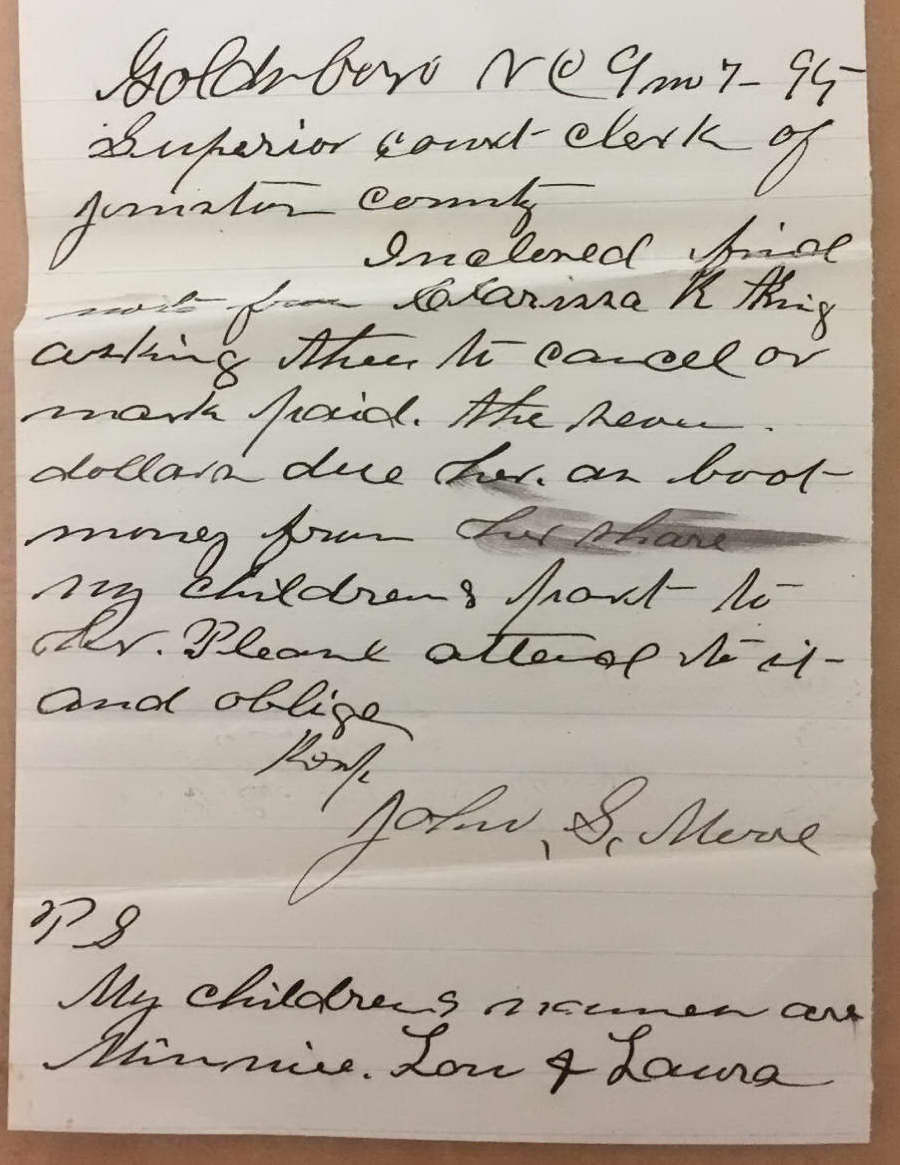 Goldsboro N C 9 mo 7 - 95
Superior court clerk of
Jonston county
Inclosed find
note from Clarissa K King
asking thee to cancel or
mark paid. the seven
dollars due her. as boot
money from her share
my childrens part to
her. Please attend to it
and oblige
Resp.
John, S,
P S
My childrens names are
Minnie. Lou & Laura